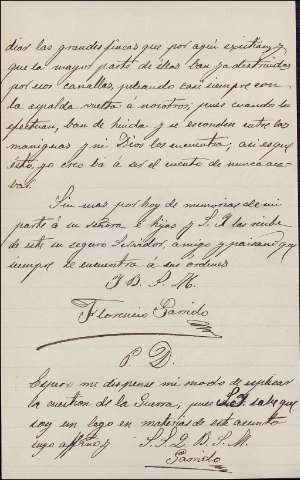 dias las grandes fincas que por aquí existian, y
que la mayor parte de ellas han ya destruidas
por esos canallas, peleando casi siempre con
la espalda vuelta á nosotros, pues cuando los
van de huida y se esconden entre las
maniguas y ni Dios los encuentra; asi es que
esto, yo creo bá á ser el cuento de nunca aca-
bar.
Sin mas por hoy de memorias de mi
parte á su señora é hijas y S. I. las recibe
de este su seguro Servidor, amigo y paisano q
siempre se encuentra á sus ordenes
I. B. S. M.
Florencio Garrido
P. D.
Espero me dispense mi modo de esplicar
la cuestion de la Guerra, pues S. I. sabe que
soy un lego en materias de este asunto
suyo affmo y S. S. Q. B. S. M.
Garrido